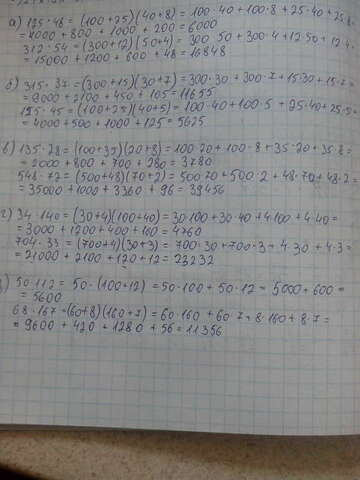 а) 125·48 = (100+25)(40+8) = 100·40+100·8+25·40+25·8
= 4000 + 800 + 1000 + 200 = 6000
312·54 = (300+12)(50+4) = 300·50+300·4+12·50+12·4
= 15000 + 1200 + 600 + 48 = 16848
б) 315·37 = (300+15)(30+7) = 300·30+300·7+15·30+15·7=
= 9000 + 2100 + 450 + 105 = 11655
125·45 = (100+25)(40+5) = 100·40+100·5+25·40+25·5=
= 4000 + 500 + 1000 + 125 = 5625
в) 135·28 = (100+35)(20+8) = 100·20+100·8+35·20+35·8=
= 2000 + 800 + 700 + 280 = 3780
548·72 = (500+48)(70+2) = 500·70+500·2+48·70+48·2=
= 35000 + 1000 + 3360 + 96 = 39456
г) 34·140 = (30+4)(100+40) = 30·100+30·40+4·100+4·40=
= 3000 + 1200 + 400 + 160 = 4760
704·33 = (700+4)(30+3) = 700·30+700·3+4·30+4·3=
= 21000 + 2100 + 120 + 12 = 23232
) 50·112 = 50·(100+12) = 50·100 + 50·12 = 5000 + 600 =
= 5600
68·167 = (60+8)(160+7) = 60·160+60·7+8·160+8·7=
= 9600 + 420 + 1280 + 56 = 11356